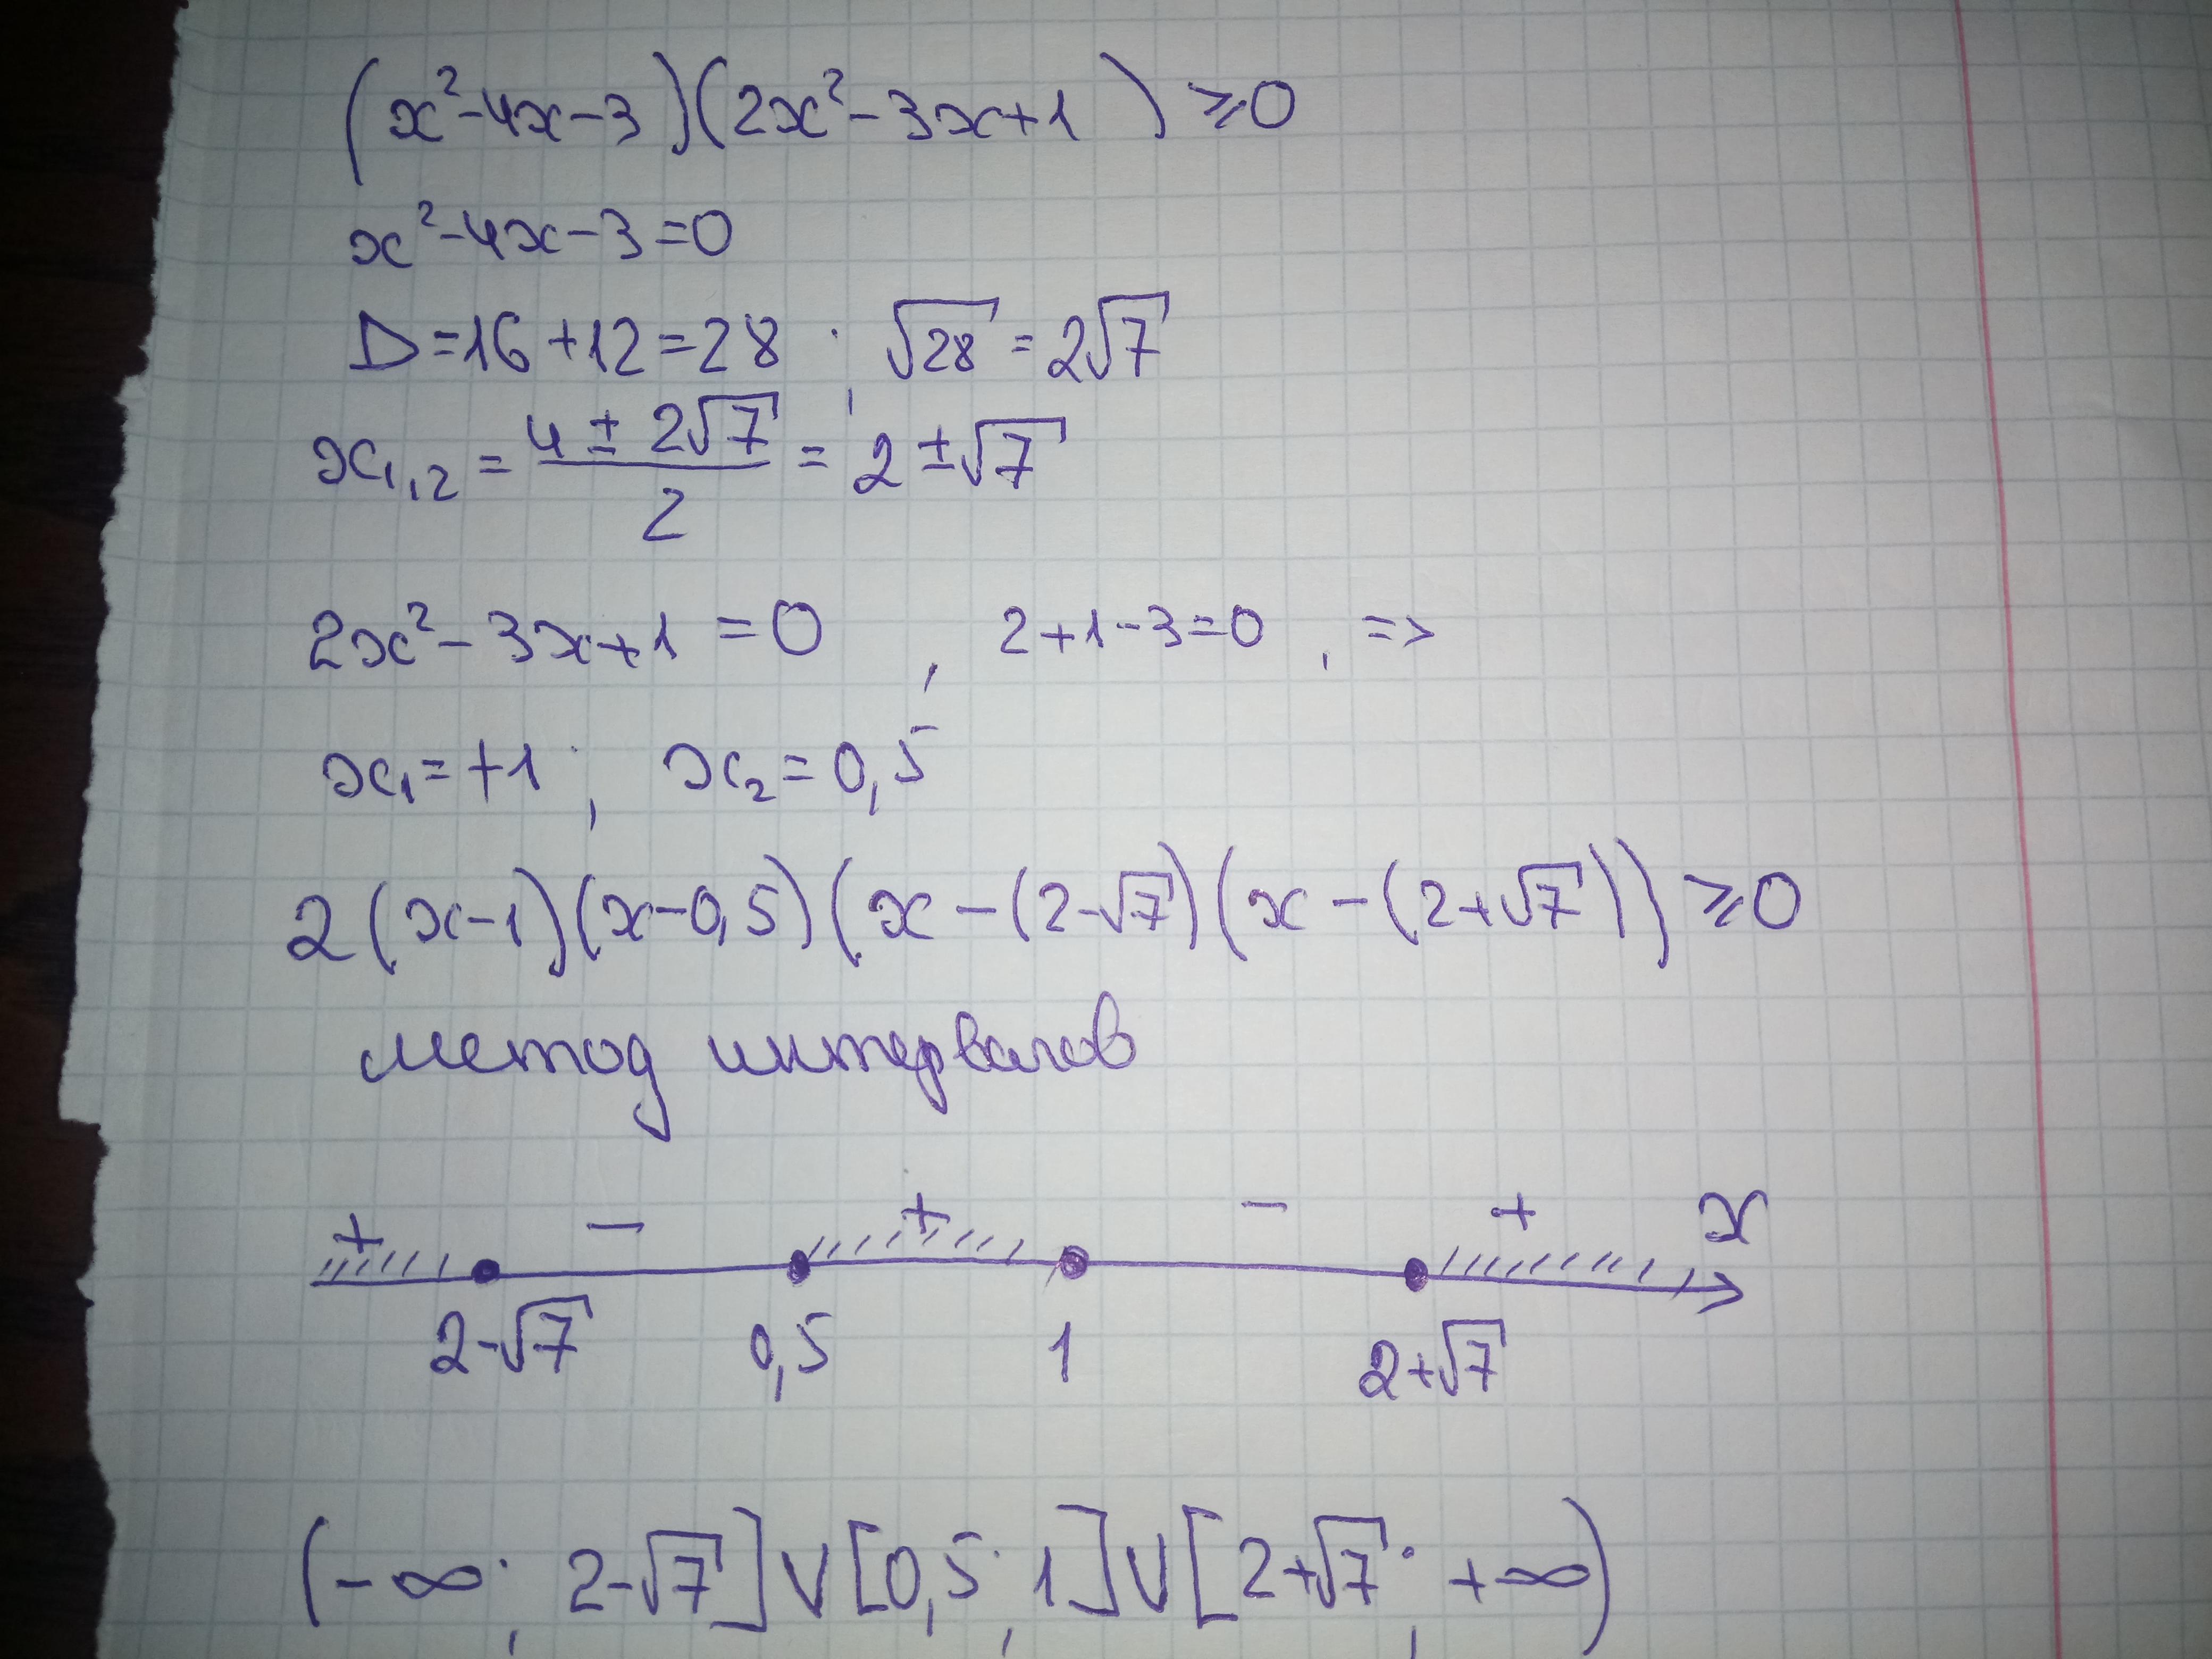 (x²-4x-3)(2x²-3x+1) ≥0
x²-4x-3=0
D=16+12=28 ; √28=2√7
x₁,₂ = (4 ± 2√7)/2 = 2±√7
2x²-3x+1=0 , 2+1-3=0 , =>
x₁=+1 ; x₂=0,5
2(x-1)(x-0,5)(x-(2-√7)(x-(2+√7)) ≥0
метод интервалов
+ - + - + x
2-√7 0,5 1 2+√7
(-∞; 2-√7]∨[0,5; 1]∨[2+√7; +∞)